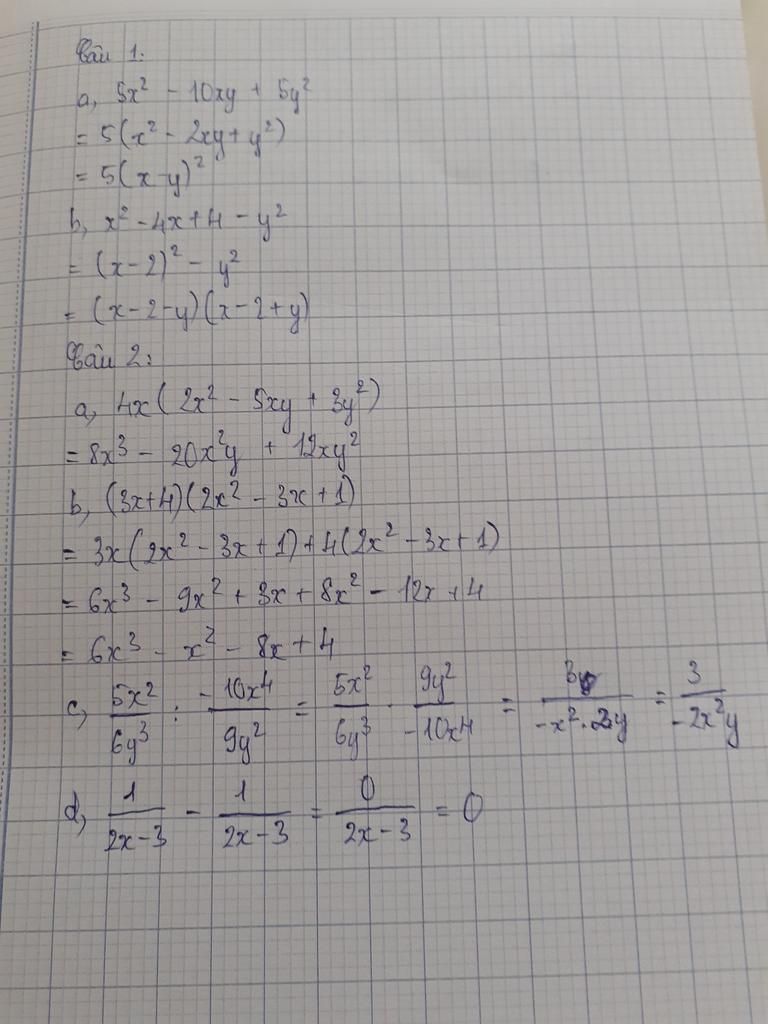 Câu 1:
a, 5x² - 10xy + 5y²
= 5(x² - 2xy + y²)
= 5(x-y)²
b, x² - 4x + 4 - y²
= (x-2)² - y²
= (x-2-y)(x-2+y)
Câu 2:
a, 4x(2x² - 5xy + 3y²)
= 8x³ - 20x²y + 12xy²
b, (3x+4)(2x² - 3x + 1)
= 3x(2x² - 3x + 1) + 4(2x² - 3x + 1)
= 6x³ - 9x² + 3x + 8x² - 12x + 4
= 6x³ - x² - 8x + 4
c, 5x²/6y³ : -10x4/9y² = 5x²/6y³ . 9y²/-10x4 = 3/-x².2y = 3/-2x²y
d, 1/2x-3 - 1/2x-3 = 0/2x-3 = 0